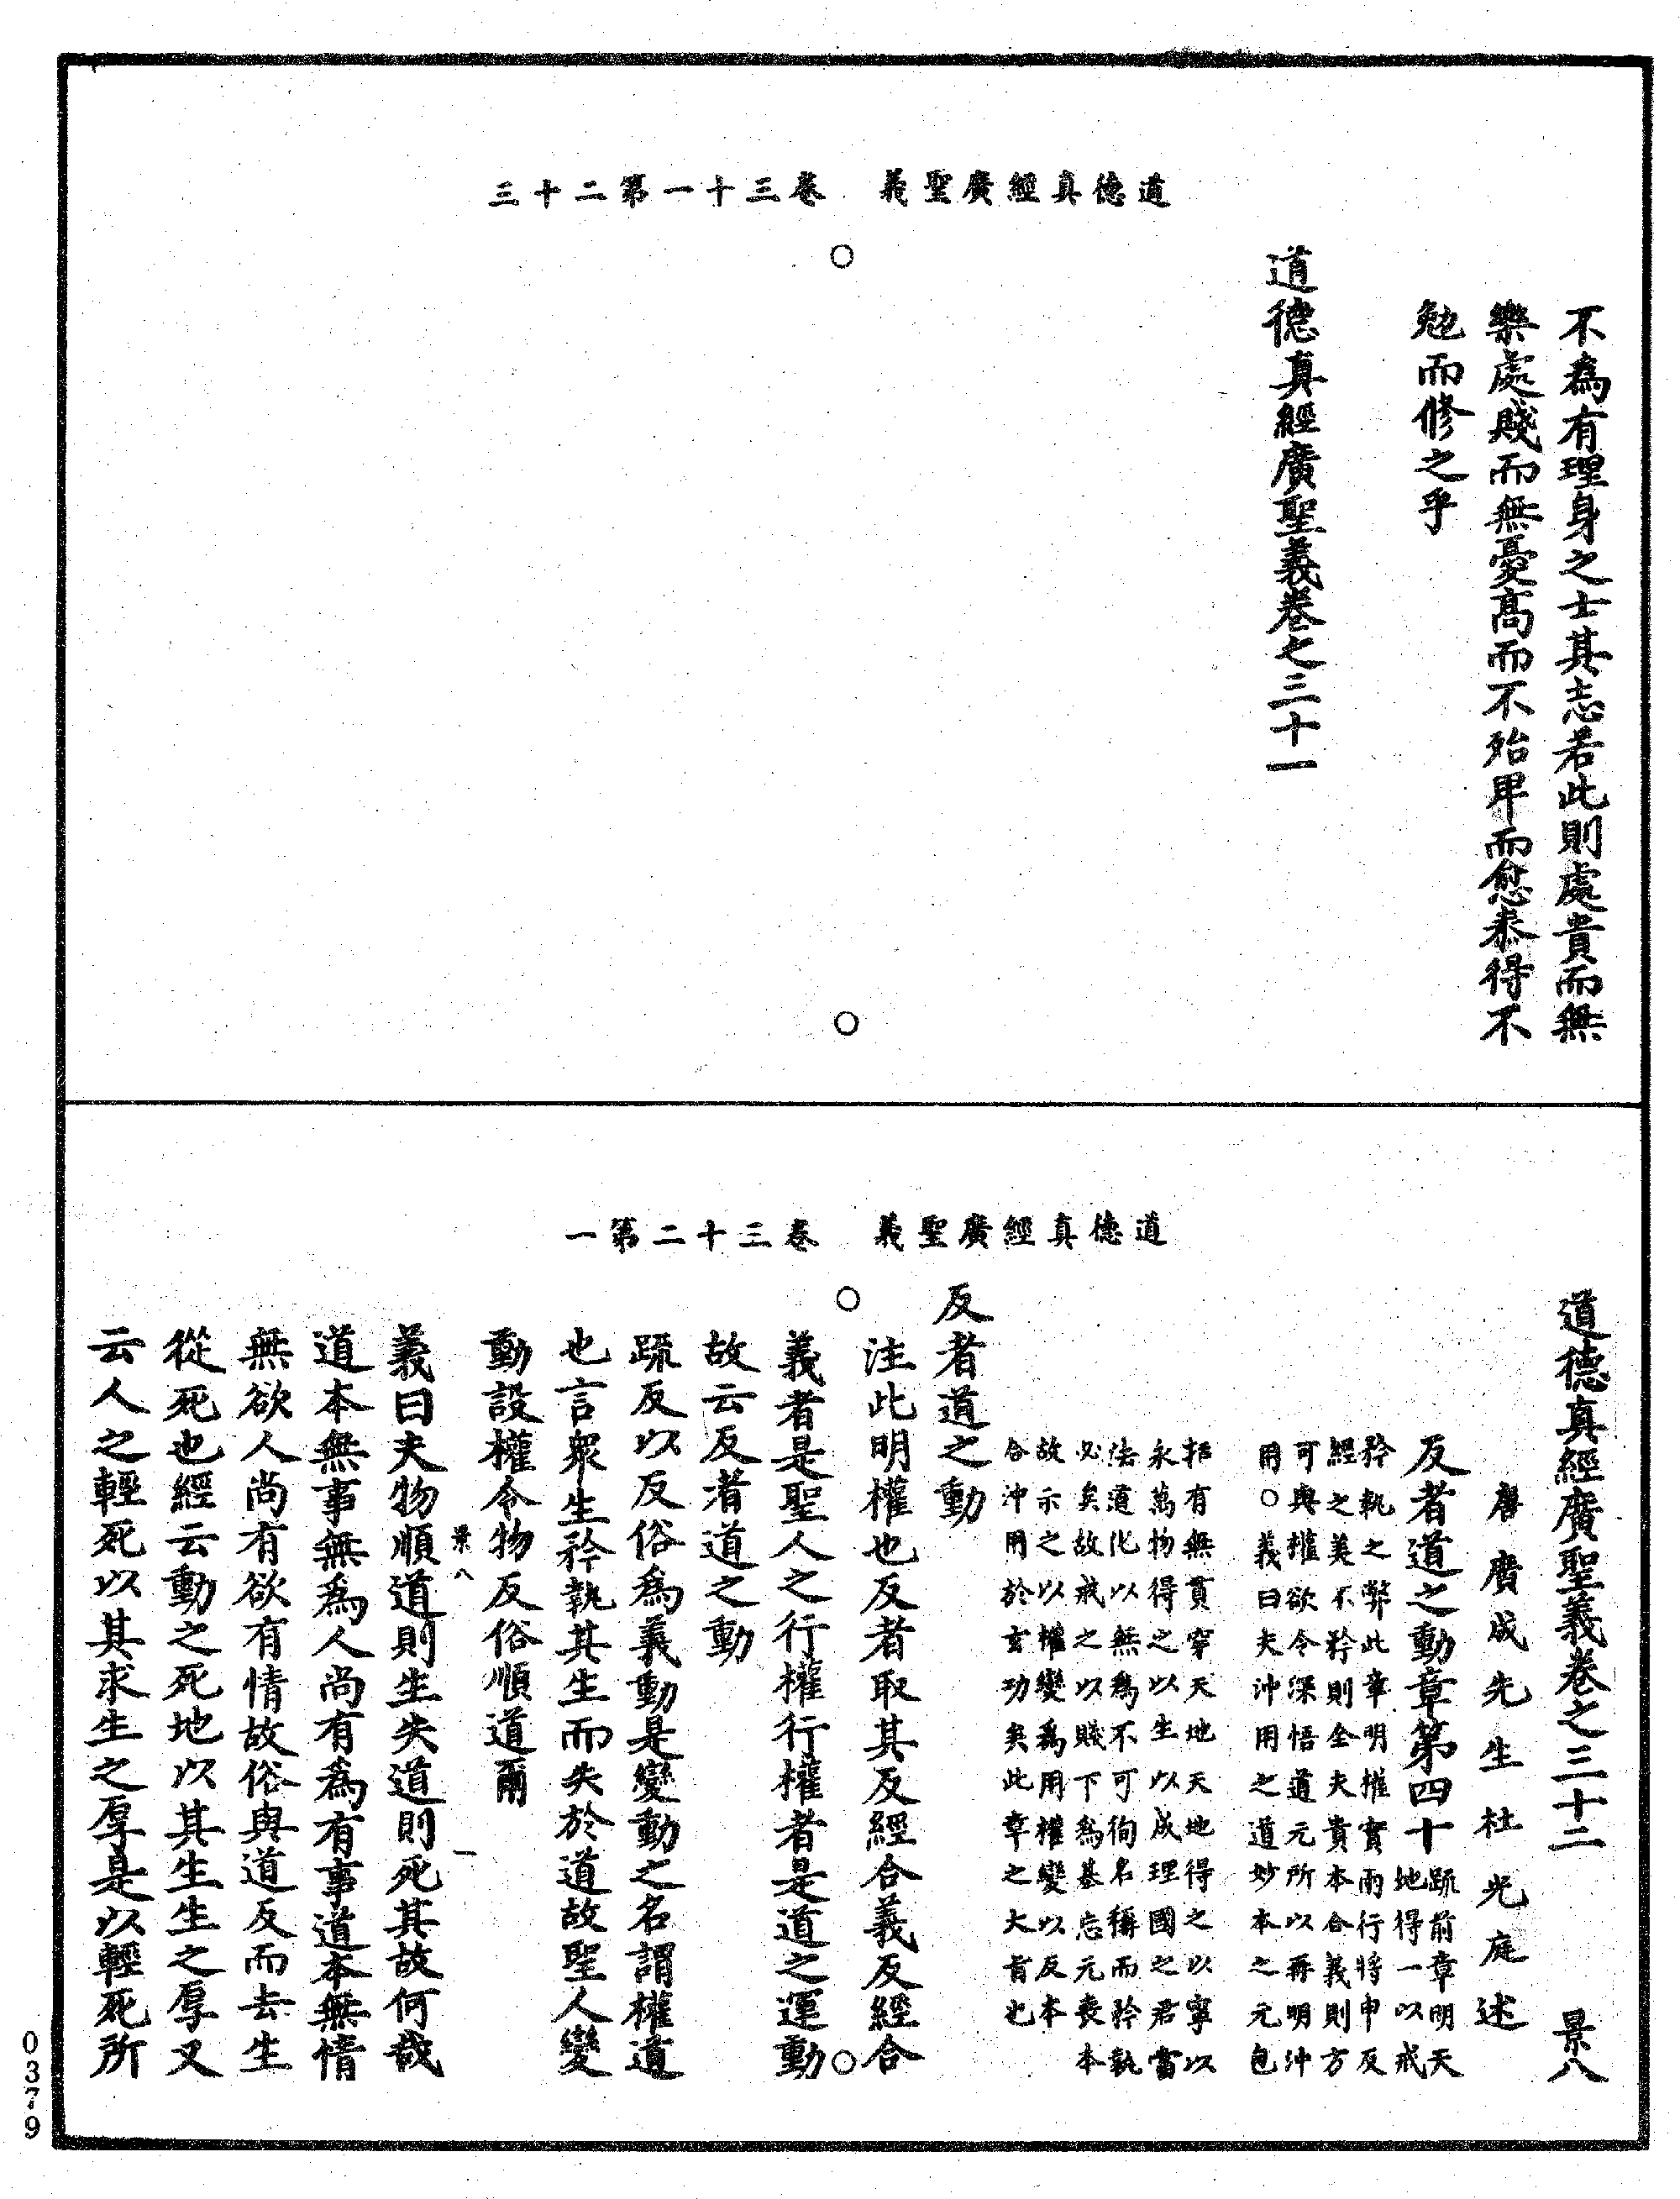 道德真經廣聖義　卷三十一第二十三
不為有理身之士其志若此則處貴而無
樂處賤而無憂高而不殆卑而愈泰得不
勉而修之乎
道德真經廣聖義卷之三十一
道德真經廣聖義　卷三十二第一
道德真經廣聖義卷之三十二　景八
唐廣成先生杜光庭述
反者道之動章第四十
疏前章明天
地得一以戒
矜執之弊此章明權實兩行將申反
經之美不矜則全夫貴本合義則方
可與權欲令深悟道元所以再明沖
用○義曰夫沖用之道妙本之元包
括有無貫穿天地天地得之以寧以
永萬物得之以生以成理國之君當
法道化以無為不可徇名稱而矜執
必矣故戒之以賤下為基忘元喪本
故示之以權變為用權變以反本
合沖用於玄功矣此章之大旨也
反者道之動
注此明權也反者取其反經合義反經合
義者是聖人之行權行權者是道之運動
故云反者道之動
疏反以反俗為義動是變動之名謂權道
也言眾生矜執其生而失於道故聖人變
動設權令物反俗順道爾
景八　一
義曰夫物順道則生失道則死其故何哉
道本無事無為人尚有為有事道本無情
無欲人尚有欲有情故俗與道反而去生
從死也經云動之死地以其生生之厚又
云人之輕死以其求生之厚是以輕死所
0379